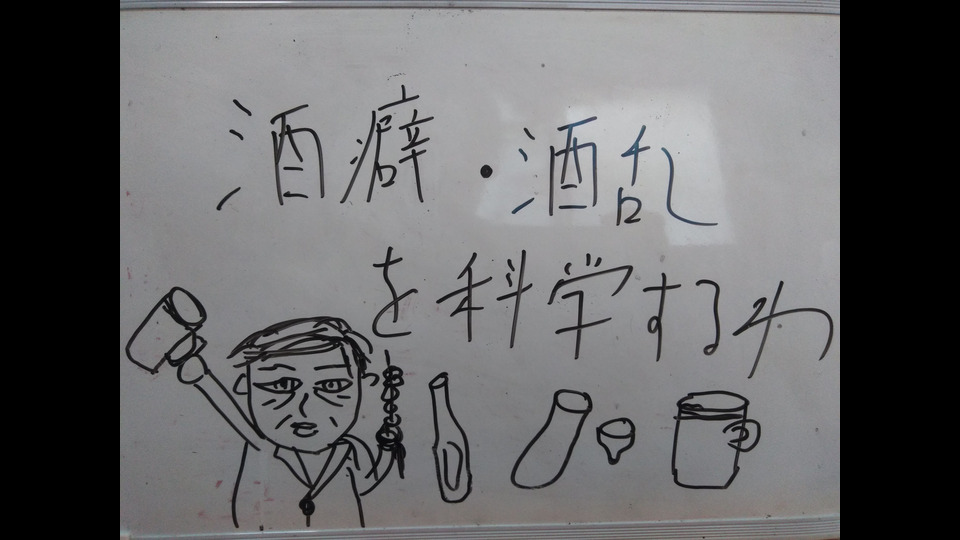 酒癖・酒乱
を科学するわ